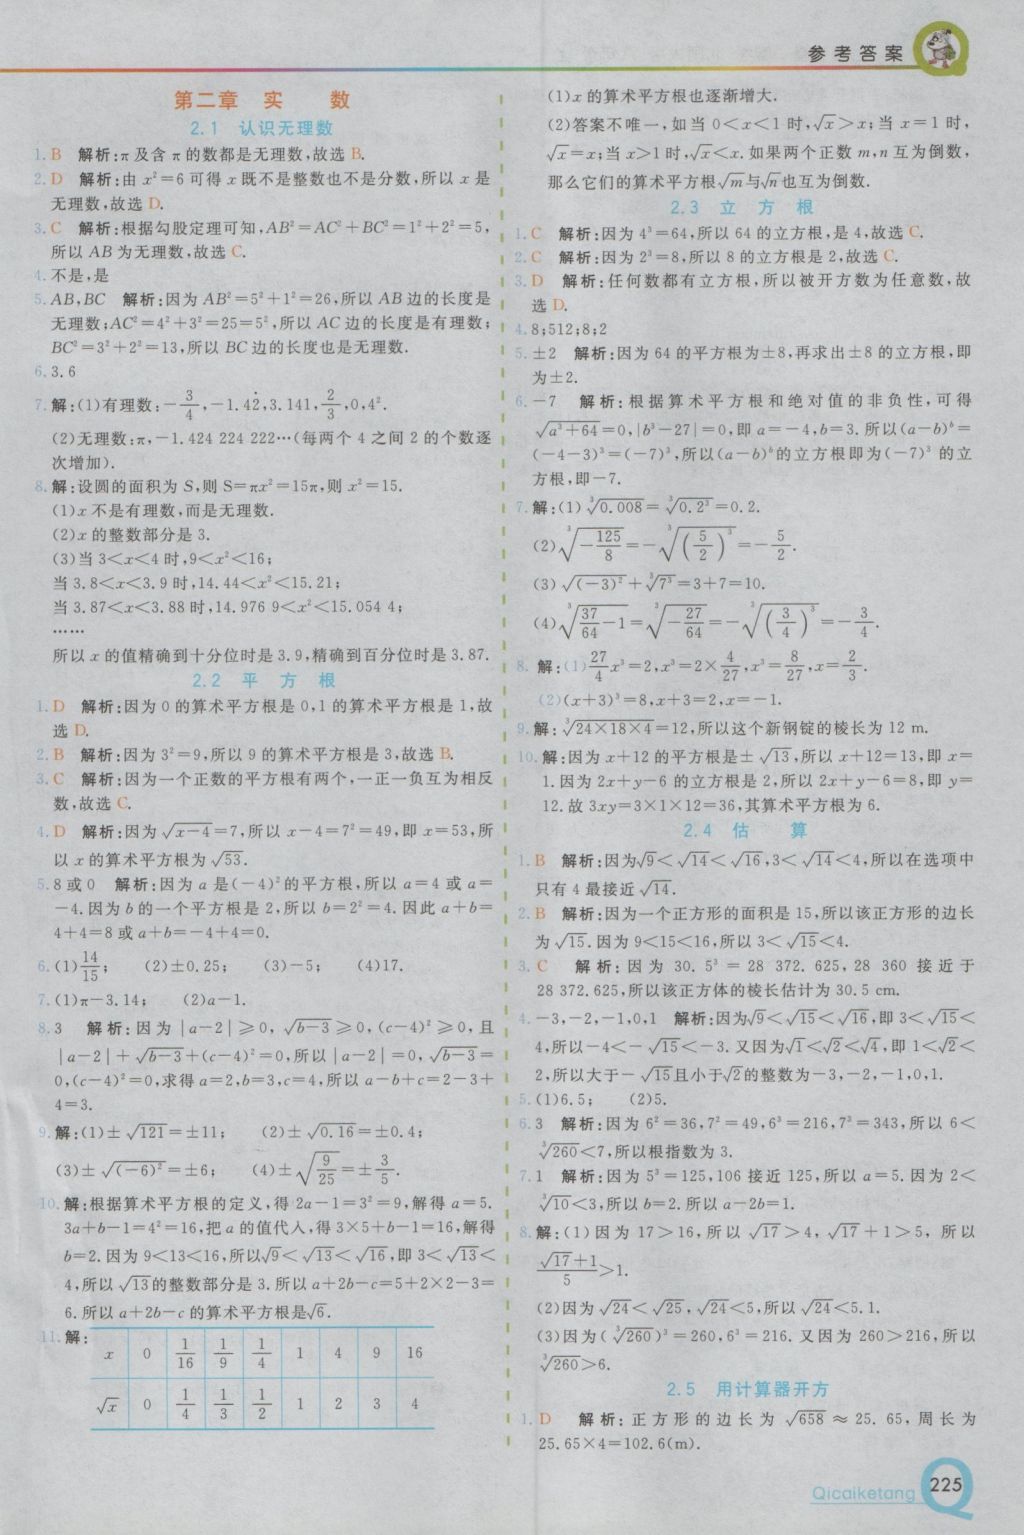 参考答案
第二章 实 数
2.1 认识无理数
1. B 解析:π及含π的数都是无理数,故选B.
2. D 解析:由x²=6可得x既不是整数也不是分数,所以x是
无理数,故选D.
3. C 解析:根据勾股定理可知,AB²=AC²+BC²=1²+2²=5,
所以AB为无理数,故选C.
4. 不是,是
5. AB,BC 解析:因为AB²=5²+1²=26,所以AB边的长度是
无理数;AC²=4²+3²=25=5²,所以AC边的长度是有理数;
BC²=3²+2²=13,所以BC边的长度也是无理数.
6. 3.6
7. 解:(1)有理数:-3/4,-1.42̇,3.141,2/3,0,4².
(2)无理数:π,-1.424 224 222…(每两个4之间2的个数逐
次增加).
8. 解:设圆的面积为S,则S=πx²=15π,则x²=15.
(1)x不是有理数,而是无理数.
(2)x的整数部分是3.
(3)当3<x<4时,9<x²<16;
当3.8<x<3.9时,14.44<x²<15.21;
当3.87<x<3.88时,14.976 9<x²<15.054 4;
……
所以x的值精确到十分位时是3.9,精确到百分位时是3.87.
2.2 平 方 根
1. D 解析:因为0的算术平方根是0,1的算术平方根是1,故
选D.
2. B 解析:因为3²=9,所以9的算术平方根是3,故选B.
3. C 解析:因为一个正数的平方根有两个,一正一负互为相反
数,故选C.
4. D 解析:因为√(x-4)=7,所以x-4=7²=49,即x=53,所
以x的算术平方根为√53.
5. 8或0 解析:因为a是(-4)²的平方根,所以a=4或a=
-4.因为b的一个平方根是2,所以b=2²=4.因此a+b=
4+4=8或a+b=-4+4=0.
6. (1)14/15; (2)±0.25; (3)-5; (4)17.
7. (1)π-3.14; (2)a-1.
8. 3 解析:因为|a-2|≥0,√(b-3)≥0,(c-4)²≥0,且
|a-2|+√(b-3)+(c-4)²=0,所以|a-2|=0,√(b-3)=
0,(c-4)²=0,求得a=2,b=3,c=4,所以a-b+c=2-3+
4=3.
9. 解:(1)±√121=±11; (2)±√0.16=±0.4;
(3)±√(-6)²=±6; (4)±√(9/25)=±3/5.
10. 解:根据算术平方根的定义,得2a-1=3²=9,解得a=5.
3a+b-1=4²=16,把a的值代入,得3×5+b-1=16,解得
b=2.因为9<13<16,所以√9<√13<√16,即3<√13<
4,所以√13的整数部分是3.所以a+2b-c=5+2×2-3=
6.所以a+2b-c的算术平方根是√6.
11. 解:
x 0 1/16 1/9 1/4 1 4 9 16
√x 0 1/4 1/3 1/2 1 2 3 4
(1)x的算术平方根也逐渐增大.
(2)答案不唯一,如当0<x<1时,√x>x;当x=1时,
√x=x;当x>1时,√x<x.如果两个正数m,n互为倒数,
那么它们的算术平方根√m与√n也互为倒数.
2.3 立 方 根
1. C 解析:因为4³=64,所以64的立方根,是4,故选C.
2. C 解析:因为2³=8,所以8的立方根是2,故选C.
3. D 解析:任何数都有立方根,所以被开方数为任意数,故
选D.
4. 8;512;8;2
5. ±2 解析:因为64的平方根为±8,再求出±8的立方根,即
为±2.
6. -7 解析:根据算术平方根和绝对值的非负性,可得
√(a³+64)=0,|b³-27|=0,即a=-4,b=3.所以(a-b)ᵇ=
(-4-3)³=(-7)³,所以(a-b)ᵇ的立方根即为(-7)³的立
方根,即-7.
7. 解:(1)∛0.008=∛0.2³=0.2.
(2)∛(-125/8)=-∛(5/2)³=-5/2.
(3)√(-3)²+∛7³=3+7=10.
(4)∛(37/64-1)=∛(-27/64)=-∛(3/4)³=-3/4.
8. 解:(1)27/4x³=2,x³=2×4/27,x³=8/27,x=2/3.
(2)(x+3)³=8,x+3=2,x=-1.
9. 解:∛(24×18×4)=12,所以这个新钢锭的棱长为12 m.
10. 解:因为x+12的平方根是±√13,所以x+12=13,即x=
1.因为2x+y-6的立方根是2,所以2x+y-6=8,即y=
12.故3xy=3×1×12=36,其算术平方根为6.
2.4 估 算
1. B 解析:因为√9<√14<√16,3<√14<4,所以在选项中
只有4最接近√14.
2. B 解析:因为一个正方形的面积是15,所以该正方形的边长
为√15.因为9<15<16,所以3<√15<4.
3. C 解析:因为30.5³=28 372.625,28 360接近于
28 372.625,所以该正方体的棱长估计为30.5 cm.
4. -3,-2,-1,0,1 解析:因为√9<√15<√16,即3<√15<
4,所以-4<-√15<-3.又因为√1<√2<√4,即1<√2<
2,所以大于-√15且小于√2的整数为-3,-2,-1,0,1.
5. (1)6.5; (2)5.
6. 3 解析:因为6²=36,7²=49,6³=216,7³=343,所以6<
∛260<7,所以根指数为3.
7. 1 解析:因为5³=125,106接近125,所以a=5.因为2<
∛10<3,所以b=2.所以a-2b=1.
8. 解:(1)因为17>16,所以√17>4,√17+1>5,所以
(√17+1)/5>1.
(2)因为√24<√25,√24<5,所以√24<5.1.
(3)因为(∛260)³=260,6³=216.又因为260>216,所以
∛260>6.
2.5 用计算器开方
1. D 解析:正方形的边长为√658≈25.65,周长为
25.65×4=102.6(m).
Qicaiketang 225